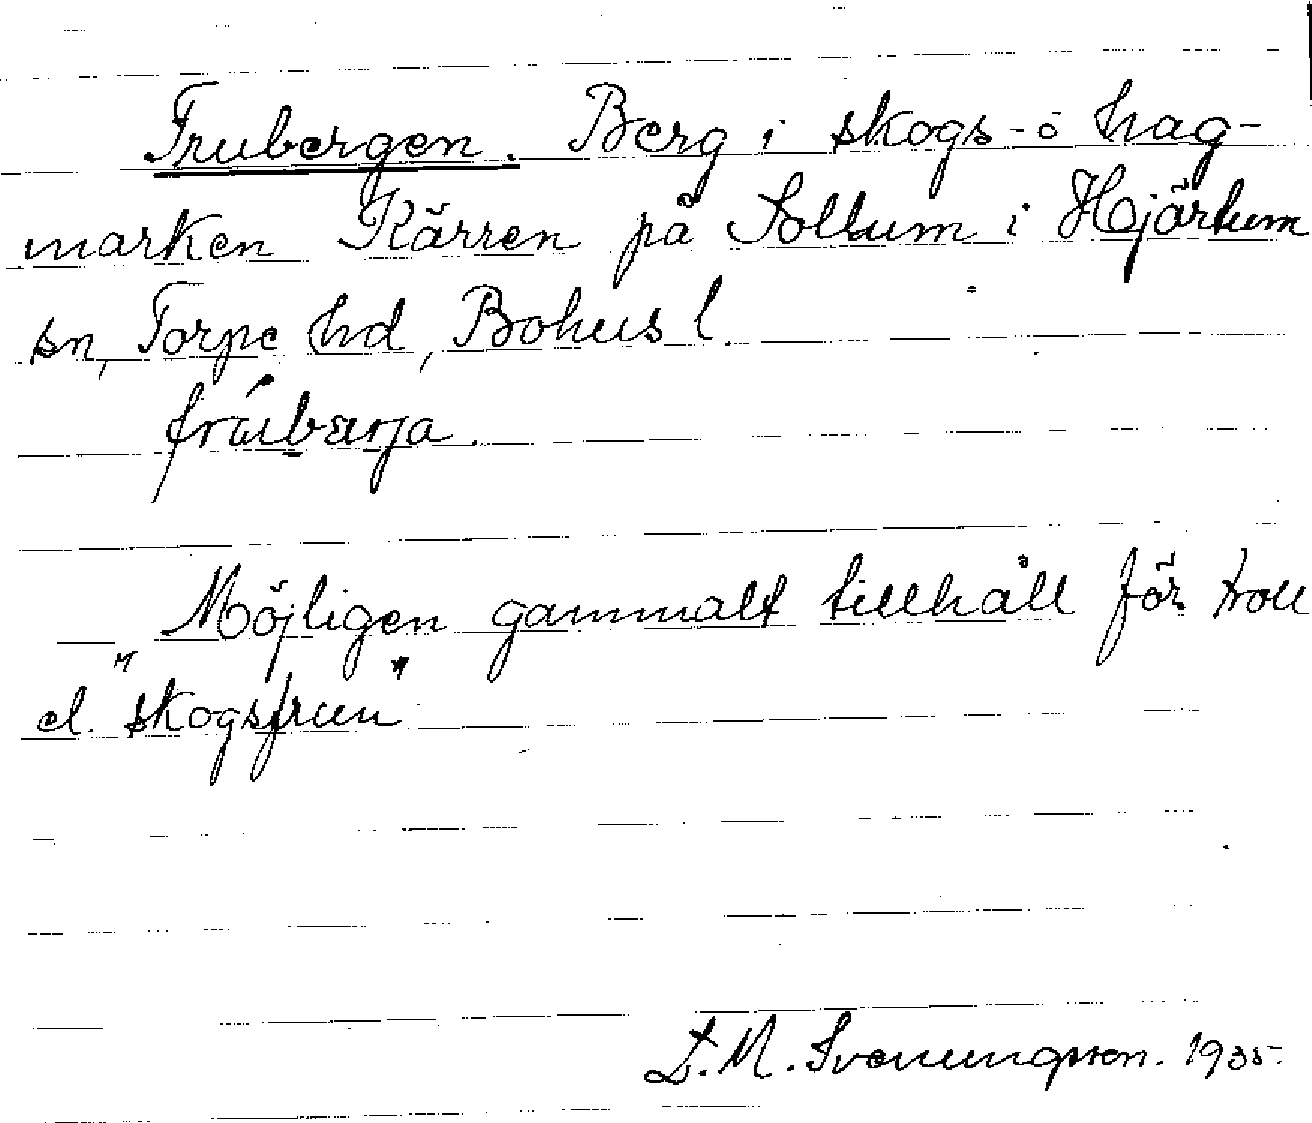 Frubergen. Berg i skogs- o hag-
marken Kärren på Soltum i Hjärtum
sn, Torpe hd, Bohus l.
Möjligen gammalt tillhåll för troll
el. "skogsfrun"
D. M. Svenungsson. 1935.